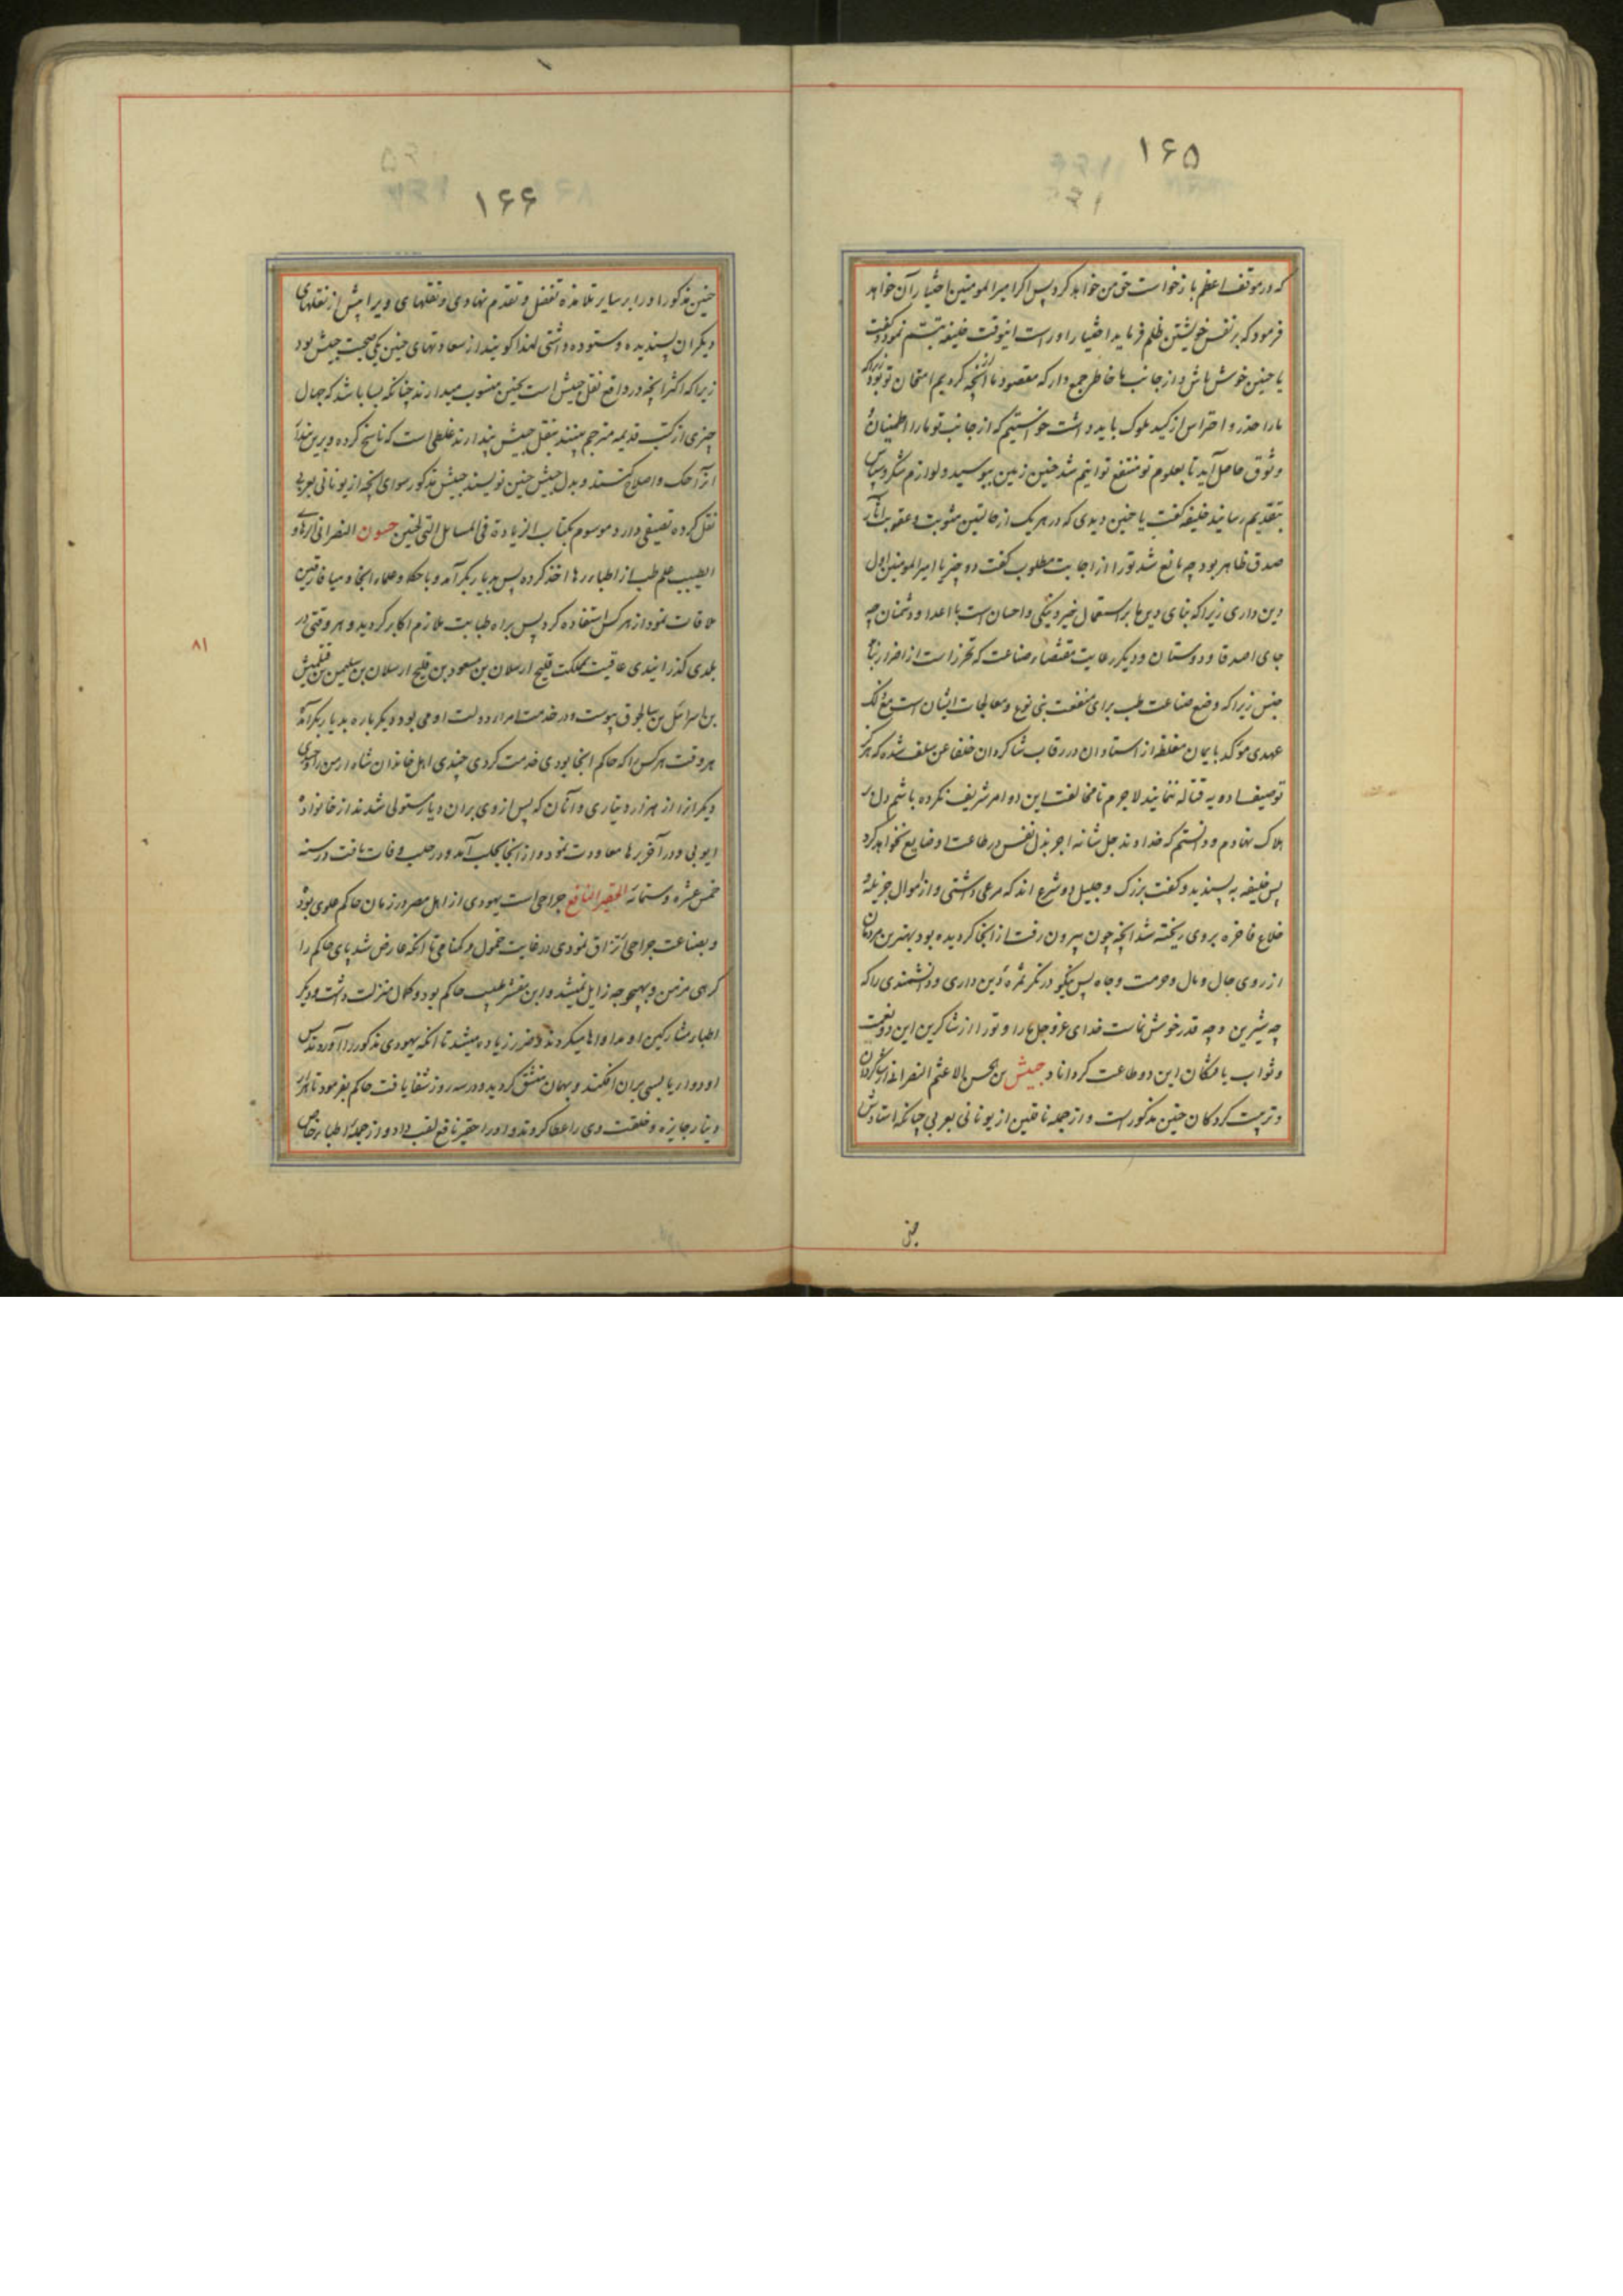 ۱۶۵
که در موقف اعظم بازخواست حق من خواهد کرد پس اگر امیرالمومنین اختیار آن خواهد
فرمود که بر نفس خویشتن ظلم فرماید اختیار او راست اینوقت خلیفه تبسم نمود و گفت
یا حنین خوش باش و از جانب ما خاطر جمع دار که مقصود ما از آنچه کردیم امتحان تو بود زیراکه
ما را حذر و احتراس از کید ملوک باید داشت خواستیم که از جانب تو ما را اطمینان و
وثوق حاصل آید تا بعلوم تو منتفع توانیم شد حنین زمین ببوسید و لوازم شکر و سپاس
بتقدیم رسانید خلیفه گفت یا حنین دیدی که در هر یک از حالتین مثوبت و عقوبت آثار
صدق ظاهر بود چه مانع شد تو را از اجابت مطلوب گفت دو چیز یا امیرالمومنین اول
دین داری زیرا که بنای دین ما بر استعمال خیر و نیکی و احسان است با اعدا و دشمنان چه
جای اصدقا و دوستان و دیگر رعایت مقتضاء صناعت که تحرز است از اضرار ابناء
جنس زیرا که وضع صناعت طب برای منفعت بنی نوع و معالجات ایشان است مع ذلک
عهدی موکد بایمان مغلظه از استادان در رقاب شاگردان خلفا عن سلف شده که هرگز
توصیف ادویه قتاله ننمایند لاجرم تا مخالفت این دو امر شریف نکرده باشم دل بر
هلاک نهادم و دانستم که خداوند جل شانه اجر بذل نفس در طاعت او ضایع نخواهد کرد
پس خلیفه به پسندید و گفت بزرگ و جلیل دو شرع اند که مرعی داشتی و از اموال جزیله و
خلاع فاخره بر وی ریخته شد آنچه چون بیرون رفت از آنجا گردیده بود بهترین مردمان
از روی حال و مال و حرمت و جاه پس نیکو در نگر ثمره دین داری و دانشمندی را که
چه شیرین و چه قدر خوش نماست خدای عزوجل ما را و تو را از شاکرین این دو نعمت
و ثواب یافتگان این دو طاعت گرداناد حبیش بن الحسن الاعثم النصرانی از شاگردان
و تربیت کردگان حنین مذکور است و از جمله ناقلین از یونانی بعربی چنانکه استادش
حنین
۱۶۶
حنین مذکور او را بر سایر تلامذه تفضل و تقدم نهادی و نقلهای ویرا پیش از نقلهای
دیگران پسندیده و ستوده داشتی لهذا گویند از سعادتهای حنین یکی صحبت حبیش بود
زیرا که اکثر آنچه در واقع نقل حبیش است بحنین منسوب میدارند چنانکه بسا باشد که جهال
چیزی از کتب قدیمه مترجم بینند بنقل حبیش پندارند غلطی است که ناسخ کرده و برین پندار
آنرا حک و اصلاح کنند و بدل حبیش حنین نویسند حبیش مذکور سوای آنچه از یونانی بعربی
نقل کرده تصنیفی دارد موسوم بکتاب الزیادة فی المسایل التی لحنین حسنون النصرانی الرهاوی
الطبیب علم طب از اطباء رها اخذ کرده پس بدیار بکر آمد و با حکما و علماء آنجا و میافارقین
ملاقات نمود از هر کس استفاده کرد پس براه طبابت ملازم اکابر گردید و هر وقتی در
بلدی گذرانیدی عاقبت بمملکت قلیج ارسلان بن مسعود بن قلیج ارسلان بن سلیمن بن قتلمیش
بن اسرائیل بن سلجوق پیوست و در خدمت امراء دولت او می بود و دیگر باره بدیار بکر آمد
هر وقت هر کس را که حاکم آنجا بودی خدمت کردی چندی اهل خاندان شاه ارمن را و چندی
دیگر از هزار دیناری و آنان که پس از وی بر آن دیار مستولی شدند از خانواده
ایوبی و در آخر برها معاودت نمود و از آنجا بحلب آمد و در حلب وفات یافت در سنه
خمس عشره و ستمائه الحقیر النافع جراحی است یهودی از اهل مصر در زمان حاکم علوی بود
و بصناعت جراحی ارتزاق نمودی در غایت خمول و گمنامی تا آنکه عارض شد پای حاکم را
گرهی مزمن و بهیچ وجه زایل نمیشد و ابن مقشر طبیب حاکم بود و کمال منزلت داشت و دیگر
اطباء مشارکین او مداواها میکردند و ضرر زیاده میشد تا آنکه یهودی مذکور را آوردند پس
او دواء یابسی بر آن افکند و بهمان منشق گردید و در سه روز شفا یافت حاکم بفرمود تا هزار
دینار جایزه و خلعت وی را عطا کردند و او را حقیر نافع لقب داد و از جمله اطباء خاص
۸۱